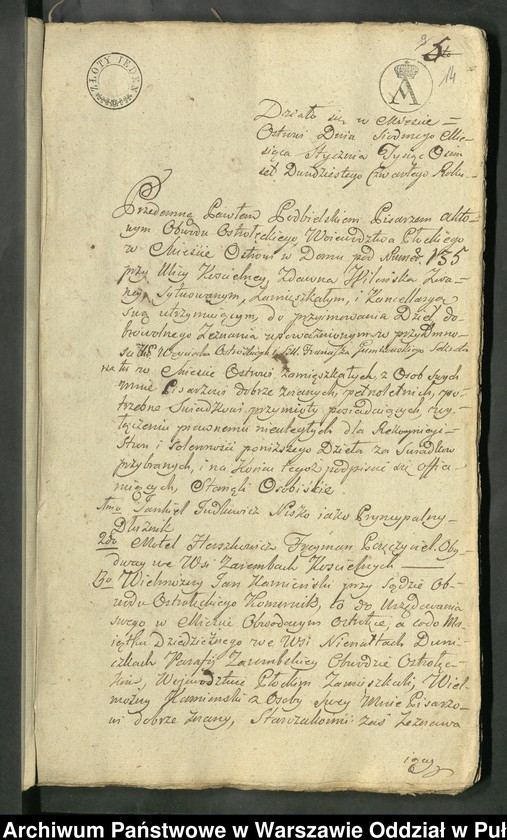 ZŁOTY JEDEN
5
14
Działo się w Mieście
Ostrowi Dnia Siodmego Mie-
siąca Stycznia Tysiąc Osm
set Dwudziestego Czwartego Roku.
Przedemną Pawłem Podbielskiem Pisarzem Akto-
wym Obwodu Ostrołęckiego Woiewodztwa Płockiego
w Mieście Ostrowi w Domu pod Numer. 135
przy Ulicy Kościelney, zdawna Zwa-
ney, Sytuowanym, Zamieszkałym, i Kancellaryą
swą utrzymuiącym, do przyimowania Dzieł do-
browolnego Zeznania upoważnionym w przytomno-
ści Woyciecha i Franciszka
w Mieście Ostrowi zamieszkałych, z Osob swych
mnie Pisarzowi dobrze znanych, pełnoletnich, po-
trzebne Swiadkowi przymioty posiadaiących, wy-
łączeniu prawnemu nieuległych dla
i Solenności poniższego Dzieła za Swiadkow
przybranych, i na Końcu tegoż podpisać się
maiących, Stanęli Osobiście
1mo Jankiel Judkowicz Nisko iako Pryncypalny
Dłużnik
2do Motel Herszkowicz Freyman Poręczyciel Oby-
dway we Wsi Zarembach Kościelnych
3o Wielmożny Jan Kamieński przy Sądzie Ob-
wodu Ostrołęckiego Komornik, co do Urzędowania
swego w Mieście Obwodowym Ostrołęce, a codo Ma-
iątku Dziedzicznego we Wsi Nienałtach Duni-
czkach Parafii Zarembskiey Obwodzie Ostrołę-
ckim, Woiewodztwie Płockim Zamieszkali, Wiel-
możny Kamienski z Osoby swey Mnie Pisarzo-
wi dobrze znany, Starozakonni zaś zeznawa
iący
Archiwum Państwowe w Warszawie Oddział w Puł